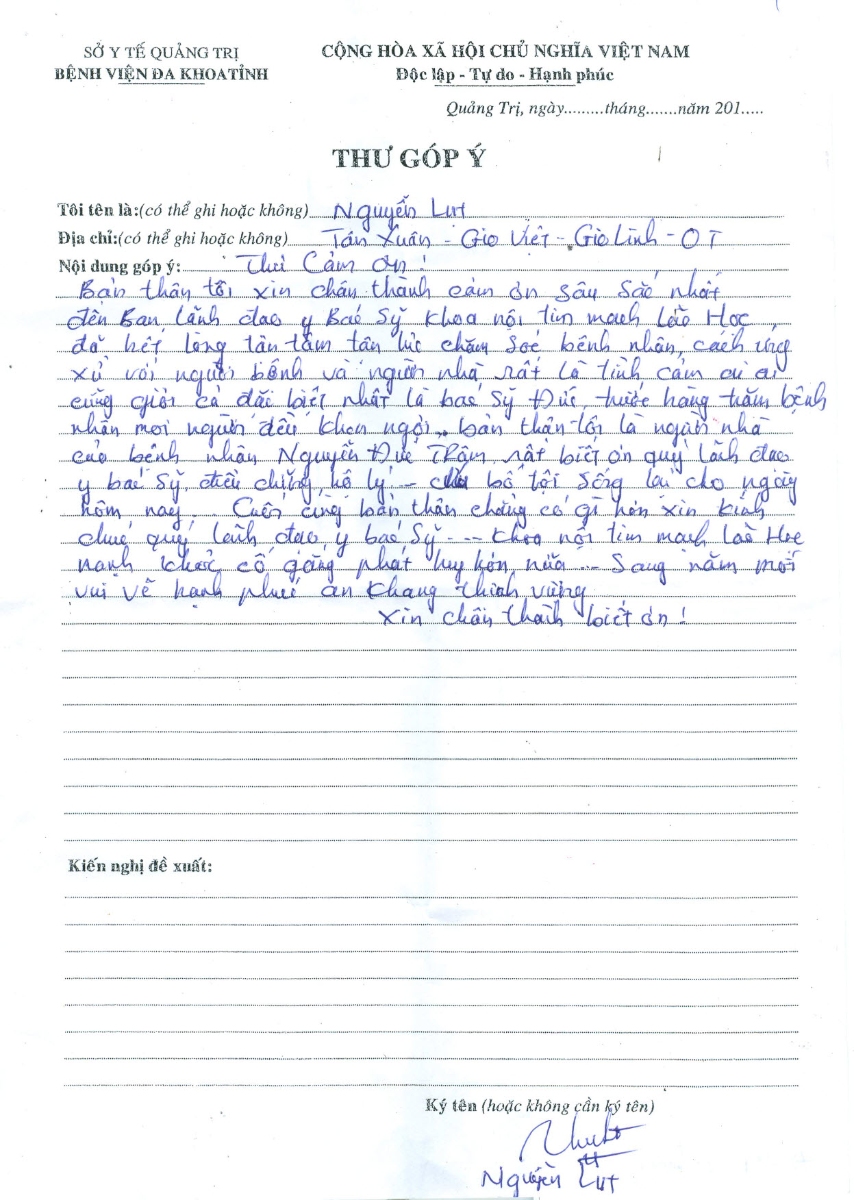 SỞ Y TẾ QUẢNG TRỊ
BỆNH VIỆN ĐA KHOA TỈNH
CỘNG HÒA XÃ HỘI CHỦ NGHĨA VIỆT NAM
Độc lập - Tự do - Hạnh phúc
Quảng Trị, ngày.........tháng.......năm 201.....
THƯ GÓP Ý
Tôi tên là:(có thể ghi hoặc không) Nguyễn Lưt
Địa chỉ:(có thể ghi hoặc không) Tân Xuân - Gio Việt - Gio Linh - QT
Nội dung góp ý: Thư Cảm ơn!
Bản thân tôi xin chân thành cảm ơn sâu sắc nhất
đến Ban lãnh đạo y Bác Sỹ khoa nội tim mạch Lão Học
đã hết lòng tận tâm tận lực chăm sóc bệnh nhân, cách ứng
xử với người bệnh và người nhà rất là tình cảm
cũng giỏi cả đặc biệt nhất là bác Sỹ Đức trước hàng trăm bệnh
nhân mọi người đều khen ngợi.. bản thân tôi là người nhà
của bệnh nhân Nguyễn Đức Trậm rất biết ơn quý lãnh đạo
y bác Sỹ, điều dưỡng, hộ lý - cứu bố tôi sống lại cho ngày
hôm nay. Cuối cùng bản thân chẳng có gì hơn xin kính
chúc quý lãnh đạo, y bác Sỹ --- khoa nội tim mạch Lão Học
mạnh khỏe, cố gắng phát huy hơn nữa ... Sang năm mới
vui vẽ hạnh phúc an khang thịnh vượng
Xin chân thành biết ơn!
Kiến nghị đề xuất:
Ký tên (hoặc không cần ký tên)
Nguyễn Lưt